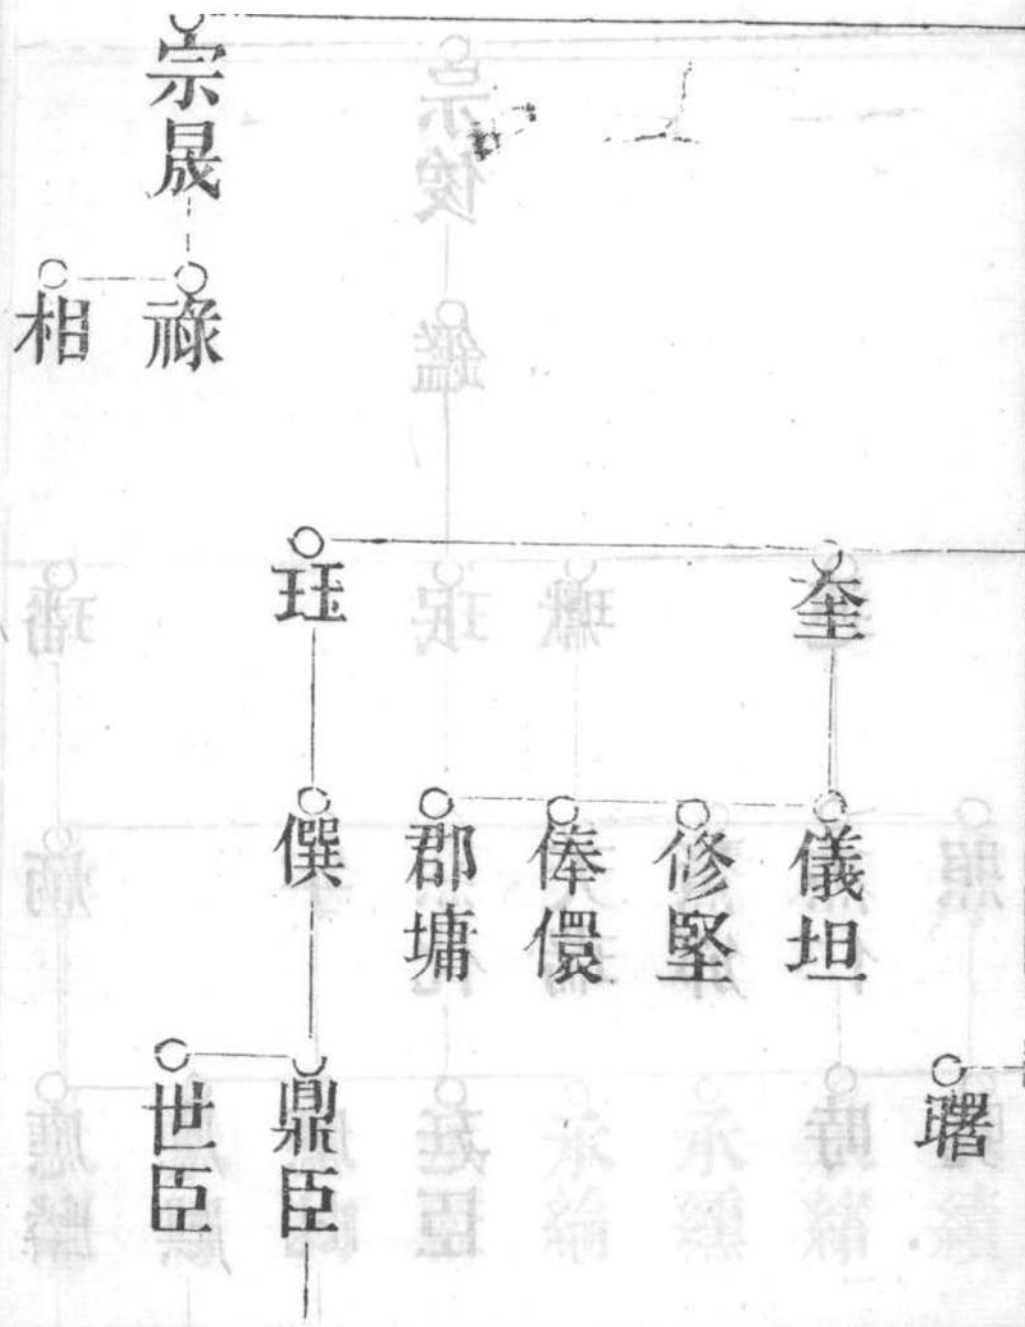 宗晟
祿
相
奎
珏
儀坦
修堅
俸儇
郡墉
僎
曙
鼎臣
世臣